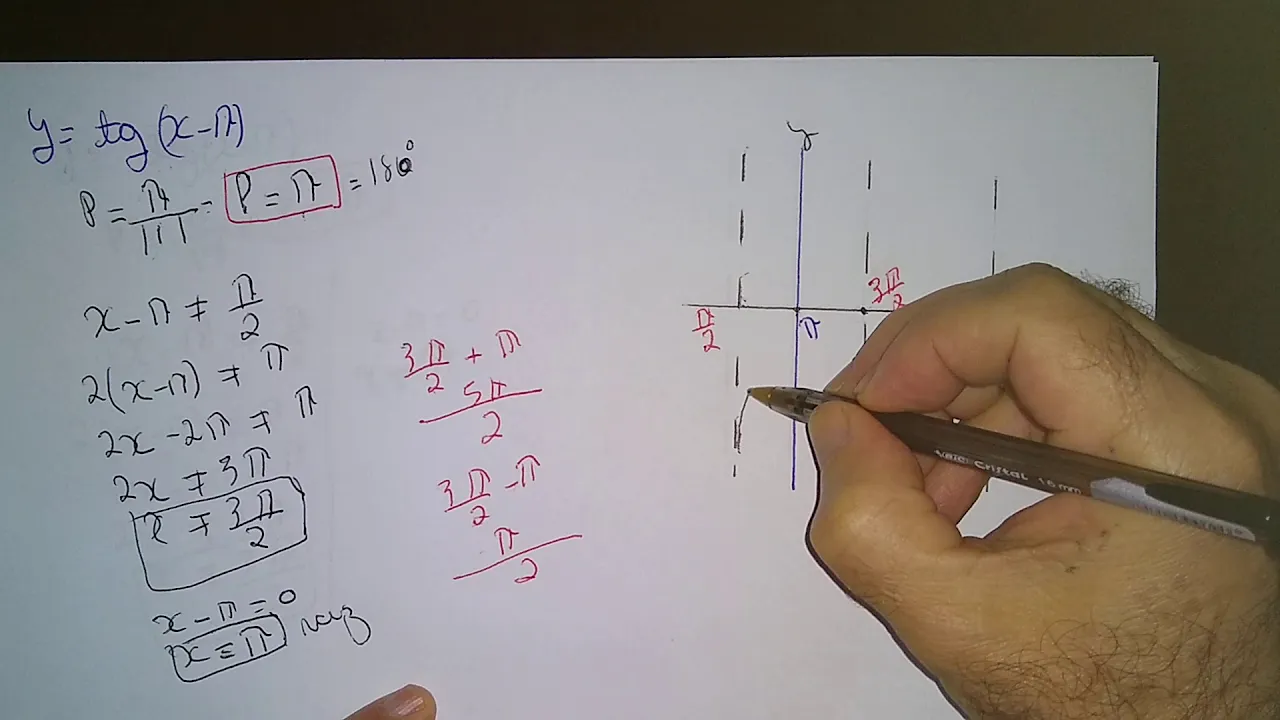 y = tg(x-π)
P = π/|1| = P = π = 180°
x - π ≠ π/2
2(x-π) ≠ π
2x - 2π ≠ π
2x ≠ 3π
x ≠ 3π/2
x - π = 0
x = π raiz
3π/2 + π
5π/2
3π/2 - π
π/2
y
3π/2
π/2
π
Cristal 1.6mm